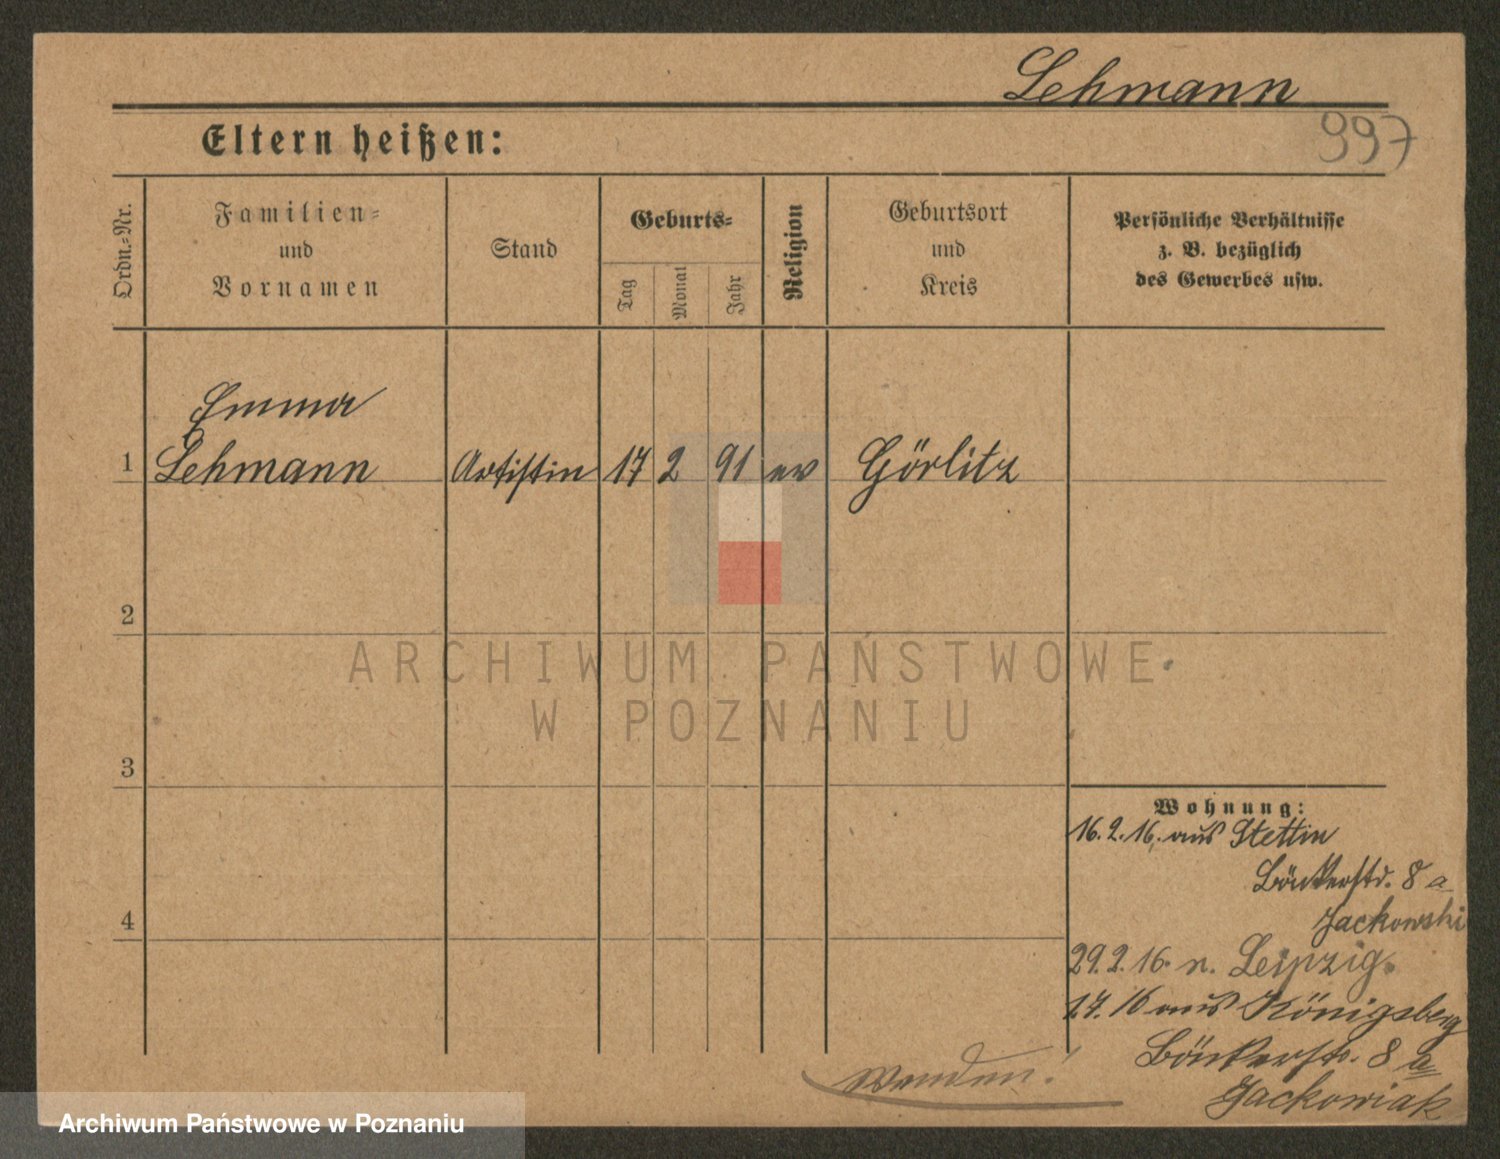 Lehmann
997
Eltern heißen:
Ordn.-Nr.
Familien-
und
Vornamen
Stand
Geburts-
Tag
Monat
Jahr
Religion
Geburtsort
und
Kreis
Persönliche Verhältnisse
z. B. bezüglich
des Gewerbes usw.
Emma
1 Lehmann Artistin 17 2 91 ev Görlitz
2
3
4
Wohnung:
16.2.16. aus Stettin
Bönkerstr. 8 a
Jackowski
29.2.16. n. Leipzig.
1.7.16 aus Königsberg
Bönkerstr. 8 a
Jackowiak
Wenden!
ARCHIWUM PAŃSTWOWE
W POZNANIU
Archiwum Państwowe w Poznaniu